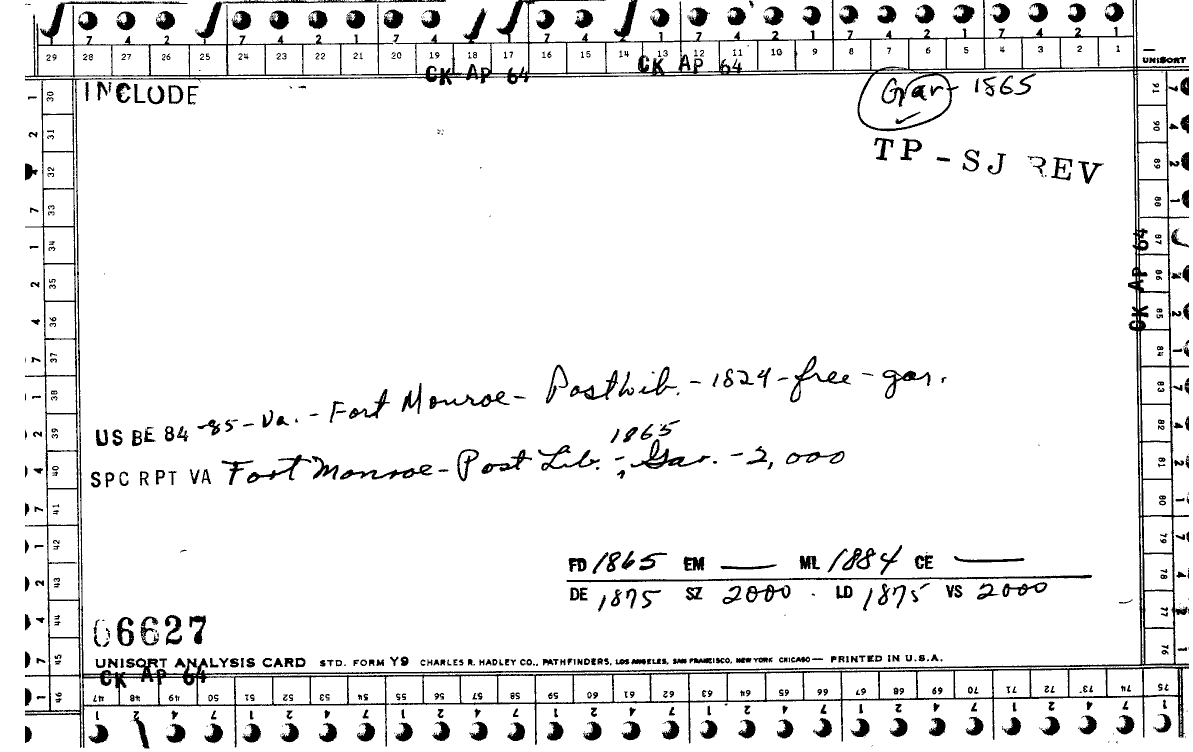 7 4 2 1 7 4 2 1 7 4 2 1 7 4 2 1 7 4 2 1 7 4 2 1
29 28 27 26 25 24 23 22 21 20 19 18 17 16 15 14 13 12 11 10 9 8 7 6 5 4 3 2 1
UNISORT
CK AP 64 CK AP 64
INCLUDE
Gar - 1865
TP - SJ REV
CK AP 64
US BE 84 -85 - Va. - Fort Monroe - Post Lib. - 1824 - free - gar.
1865
SPC RPT VA Fort Monroe - Post Lib. - , Gar. - 2,000
FD 1865 EM —— ML 1884 CE ——
DE 1875 SZ 2000 . LD 1875 VS 2000
06627
UNISORT ANALYSIS CARD STD. FORM Y9 CHARLES R. HADLEY CO., PATHFINDERS, LOS ANGELES, SAN FRANCISCO, NEW YORK CHICAGO — PRINTED IN U.S.A.
CK AP 64
30 31 32 33 34 35 36 37 38 39 40 41 42 43 44 45 46
47 48 49 50 51 52 53 54 55 56 57 58 59 60 61 62 63 64 65 66 67 68 69 70 71 72 73 74 75
76 77 78 79 80 81 82 83 84 85 86 87 88 89 90 91